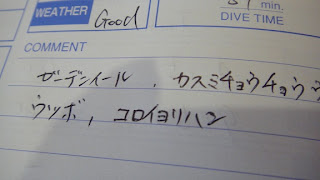 WEATHER Good min.
DIVE TIME
COMMENT
ガーデンイール . カスミチョウチョウウ
ウツボ, コロイヨリハン